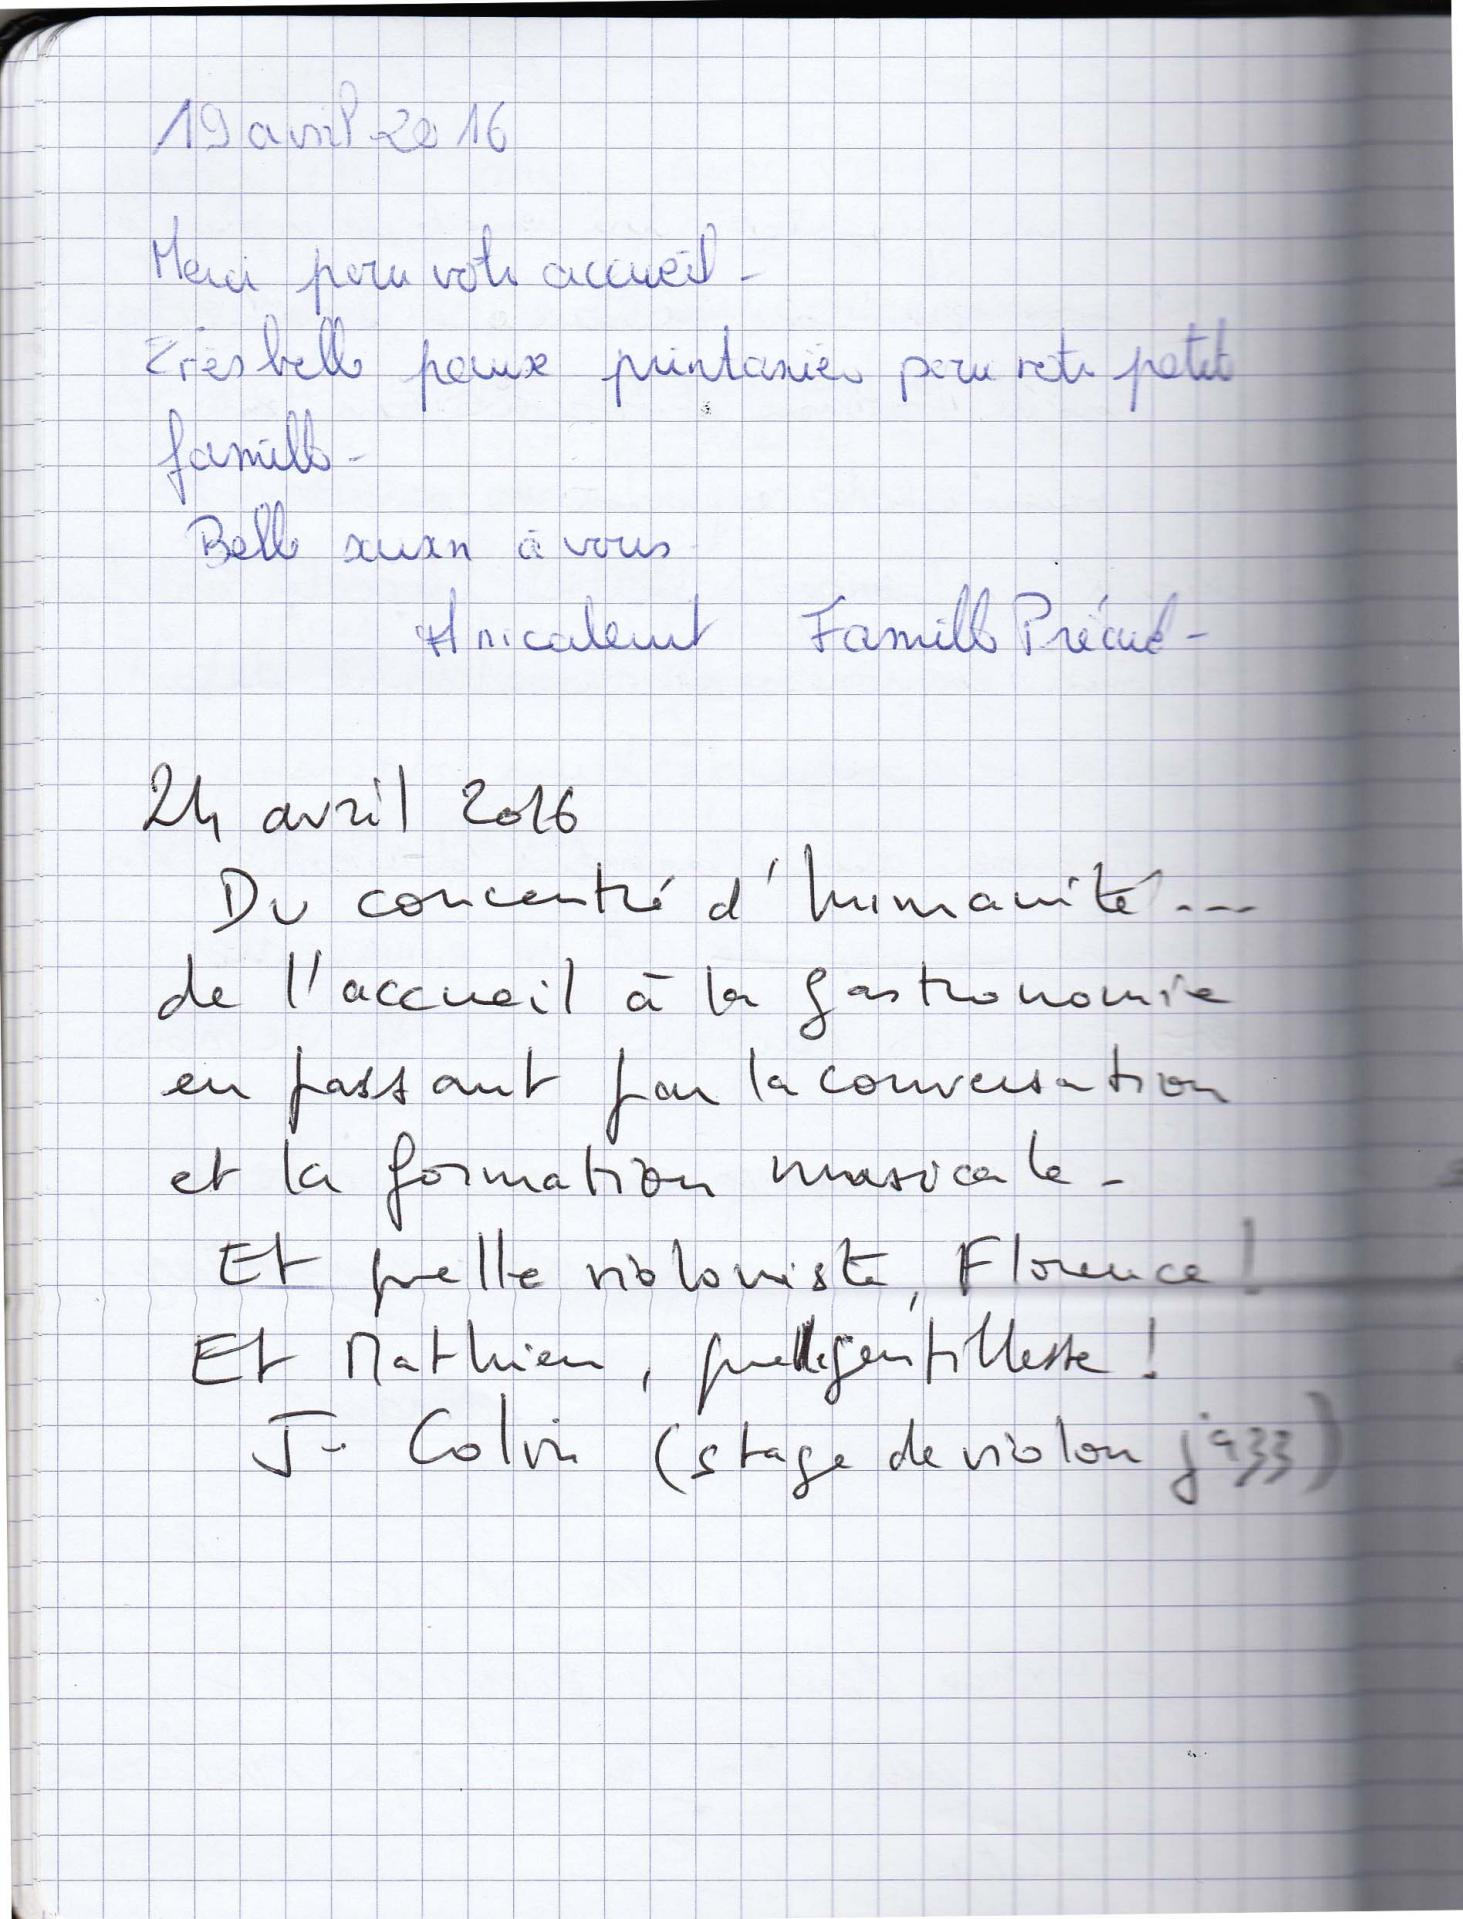 19 avril 2016
Merci pour votre accueil -
Très belle pause printanière pour notre petite
famille -
Belle saison à vous
Amicalement Famille
24 avril 2016
Du concentré d'humanité ...
de l'accueil à la gastronomie
en passant par la conversation
et la formation musicale -
Et quelle violoniste, Florence !
Et Mathieu, quelle gentillesse !
J- Colvin (stage de violon jazz)